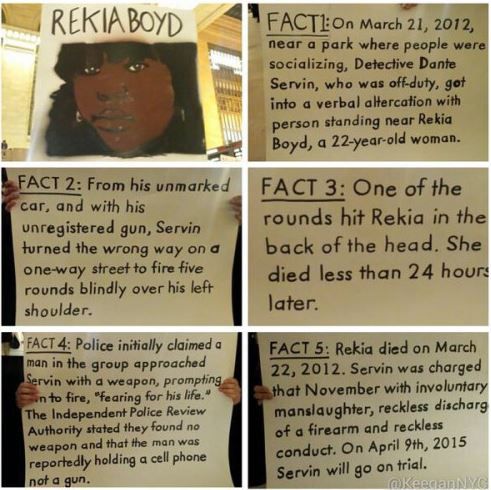 REKIA BOYD
FACT 1: On March 21, 2012,
near a park where people were
socializing, Detective Dante
Servin, who was off-duty, got
into a verbal altercation with
person standing near Rekia
Boyd, a 22-year-old woman.
FACT 2: From his unmarked
car, and with his
unregistered gun, Servin
turned the wrong way on a
one-way street to fire five
rounds blindly over his left
shoulder.
FACT 3: One of the
rounds hit Rekia in the
back of the head. She
died less than 24 hours
later.
FACT 4: Police initially claimed a
man in the group approached
Servin with a weapon, prompting
to fire, "fearing for his life."
The Independent Police Review
Authority stated they found no
weapon and that the man was
reportedly holding a cell phone
not a gun.
FACT 5: Rekia died on March
22, 2012. Servin was charged
that November with involuntary
manslaughter, reckless discharg
of a firearm and reckless
conduct. On April 9th, 2015
Servin will go on trial.
@KeeganNYC